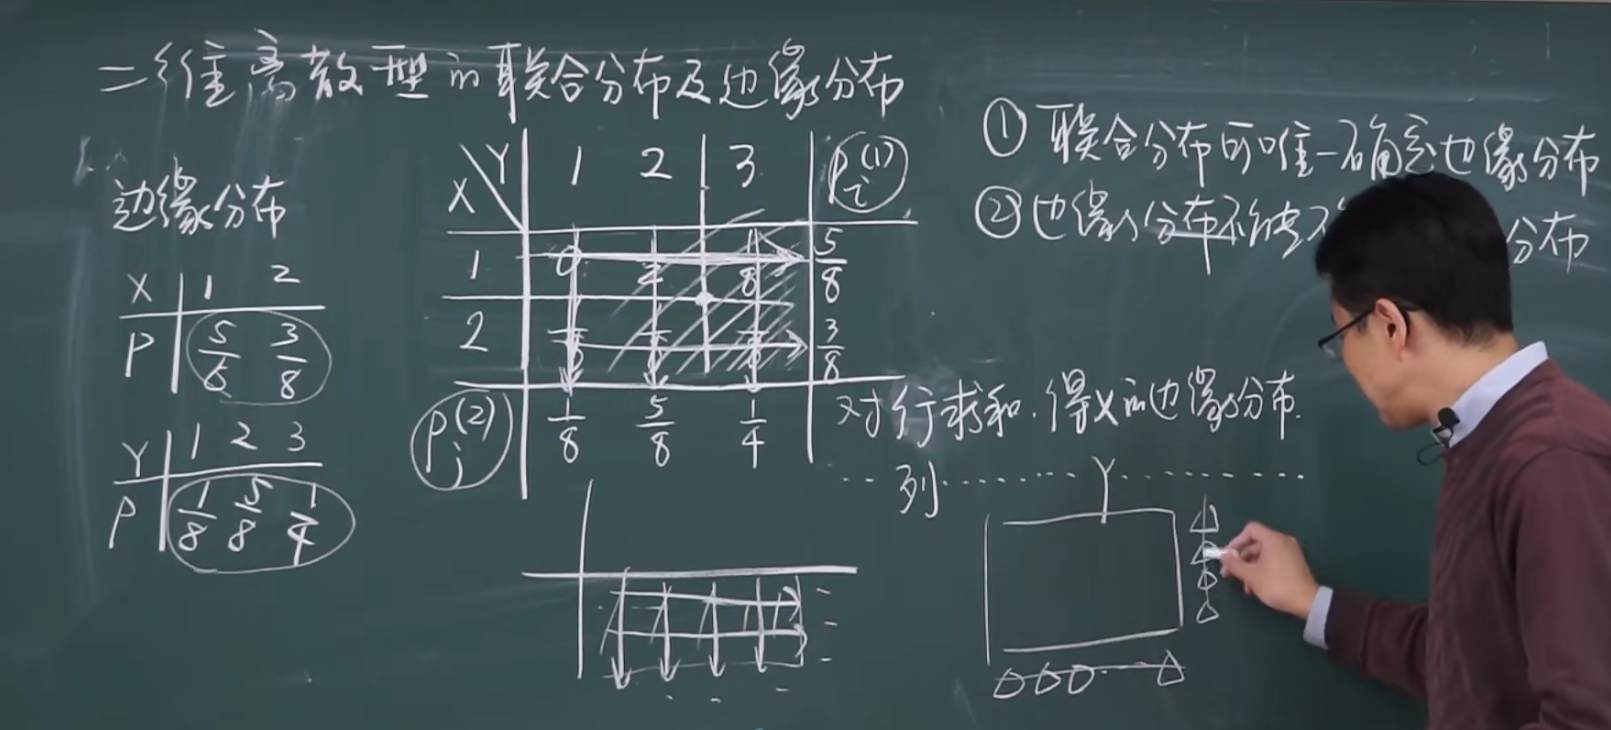 二维离散型的联合分布及边缘分布
边缘分布
X 1 2
P 5/8 3/8
Y 1 2 3
P 1/8 5/8 1/4
X Y 1 2 3 Pi(1)
1 0 8 5/8
2 3/8
Pj(2) 1/8 5/8 1/4
① 联合分布可唯一确定边缘分布
② 边缘分布不能 分布
对行求和.得X的边缘分布.
‥列‥‥‥Y‥‥‥‥